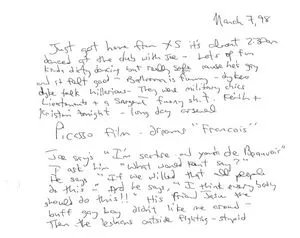 March 7, 98
Just got home from XS it's about 2:30am
danced at the club with Joe - Lots of fun
kinda dirty dancing but really safe cause he's gay
and it felt good - Bathroom is funny - dykes
dyke talk hillarious - They were military chics
Lieutenants & a Sargent funny shit. Keith &
Kristin tonight - long day around
Picasso film - dreams "Francois"
Joe says "I'm Sartre and you're de Beauvoir"
I ask him "what would Kant say?"
He says "If we willed that all people
do this" - And he says, "I think everybody
should do this!!" His friend Jesse the
buff gay boy didn't like me around -
Then the lesbians outside fighting - stupid